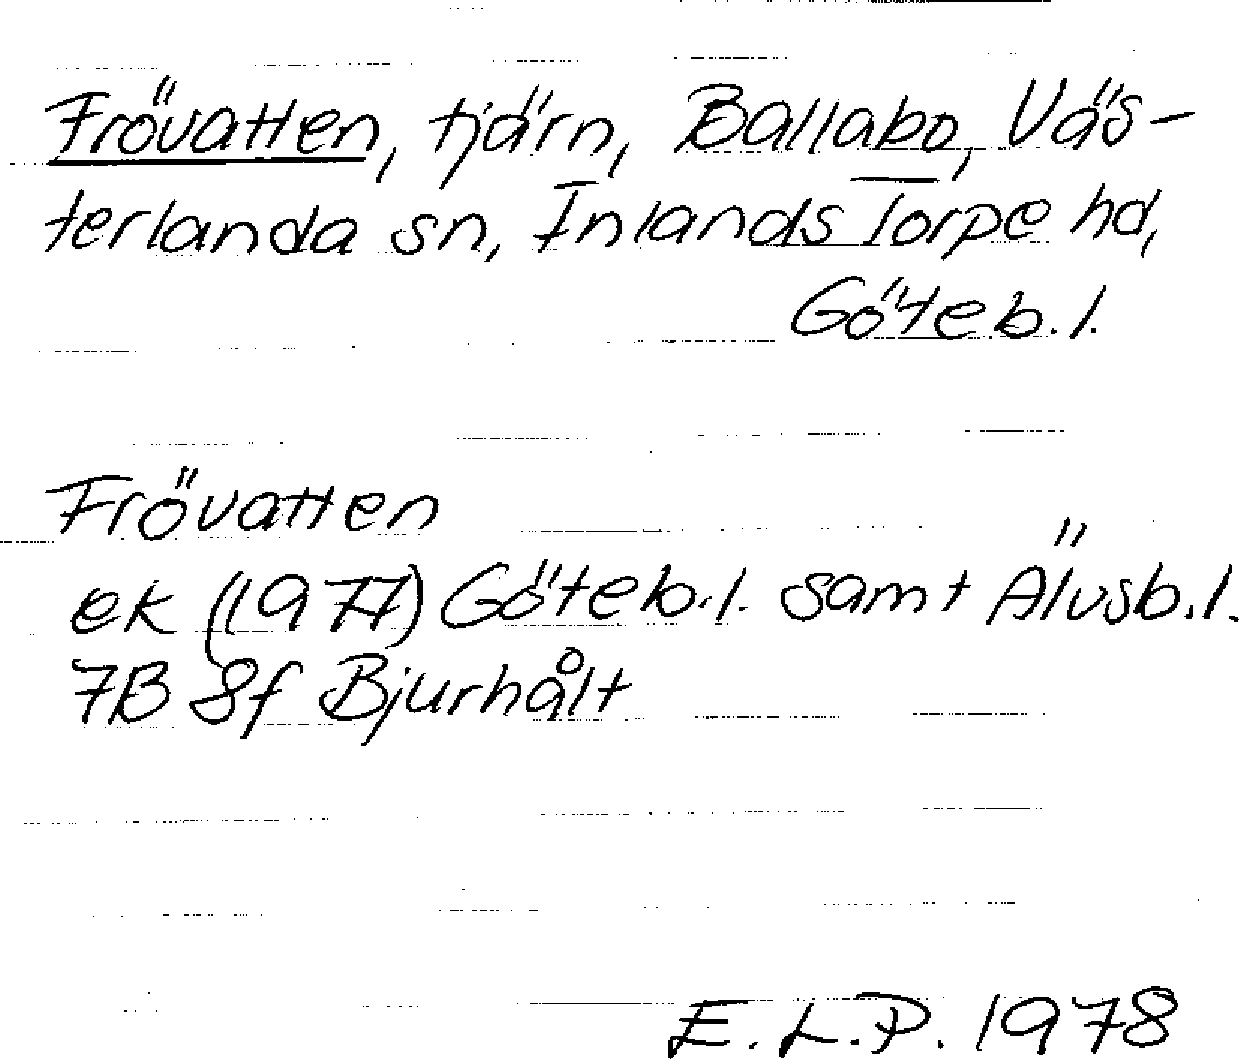 Frövatten, tjärn, Ballabo, Väs-
terlanda sn, Inlands Torpe hd,
Göteb.l.
Frövatten
ek (1977) Göteb.l. samt Älvsb.l.
7B 8f Bjurhålt
E.L.P. 1978